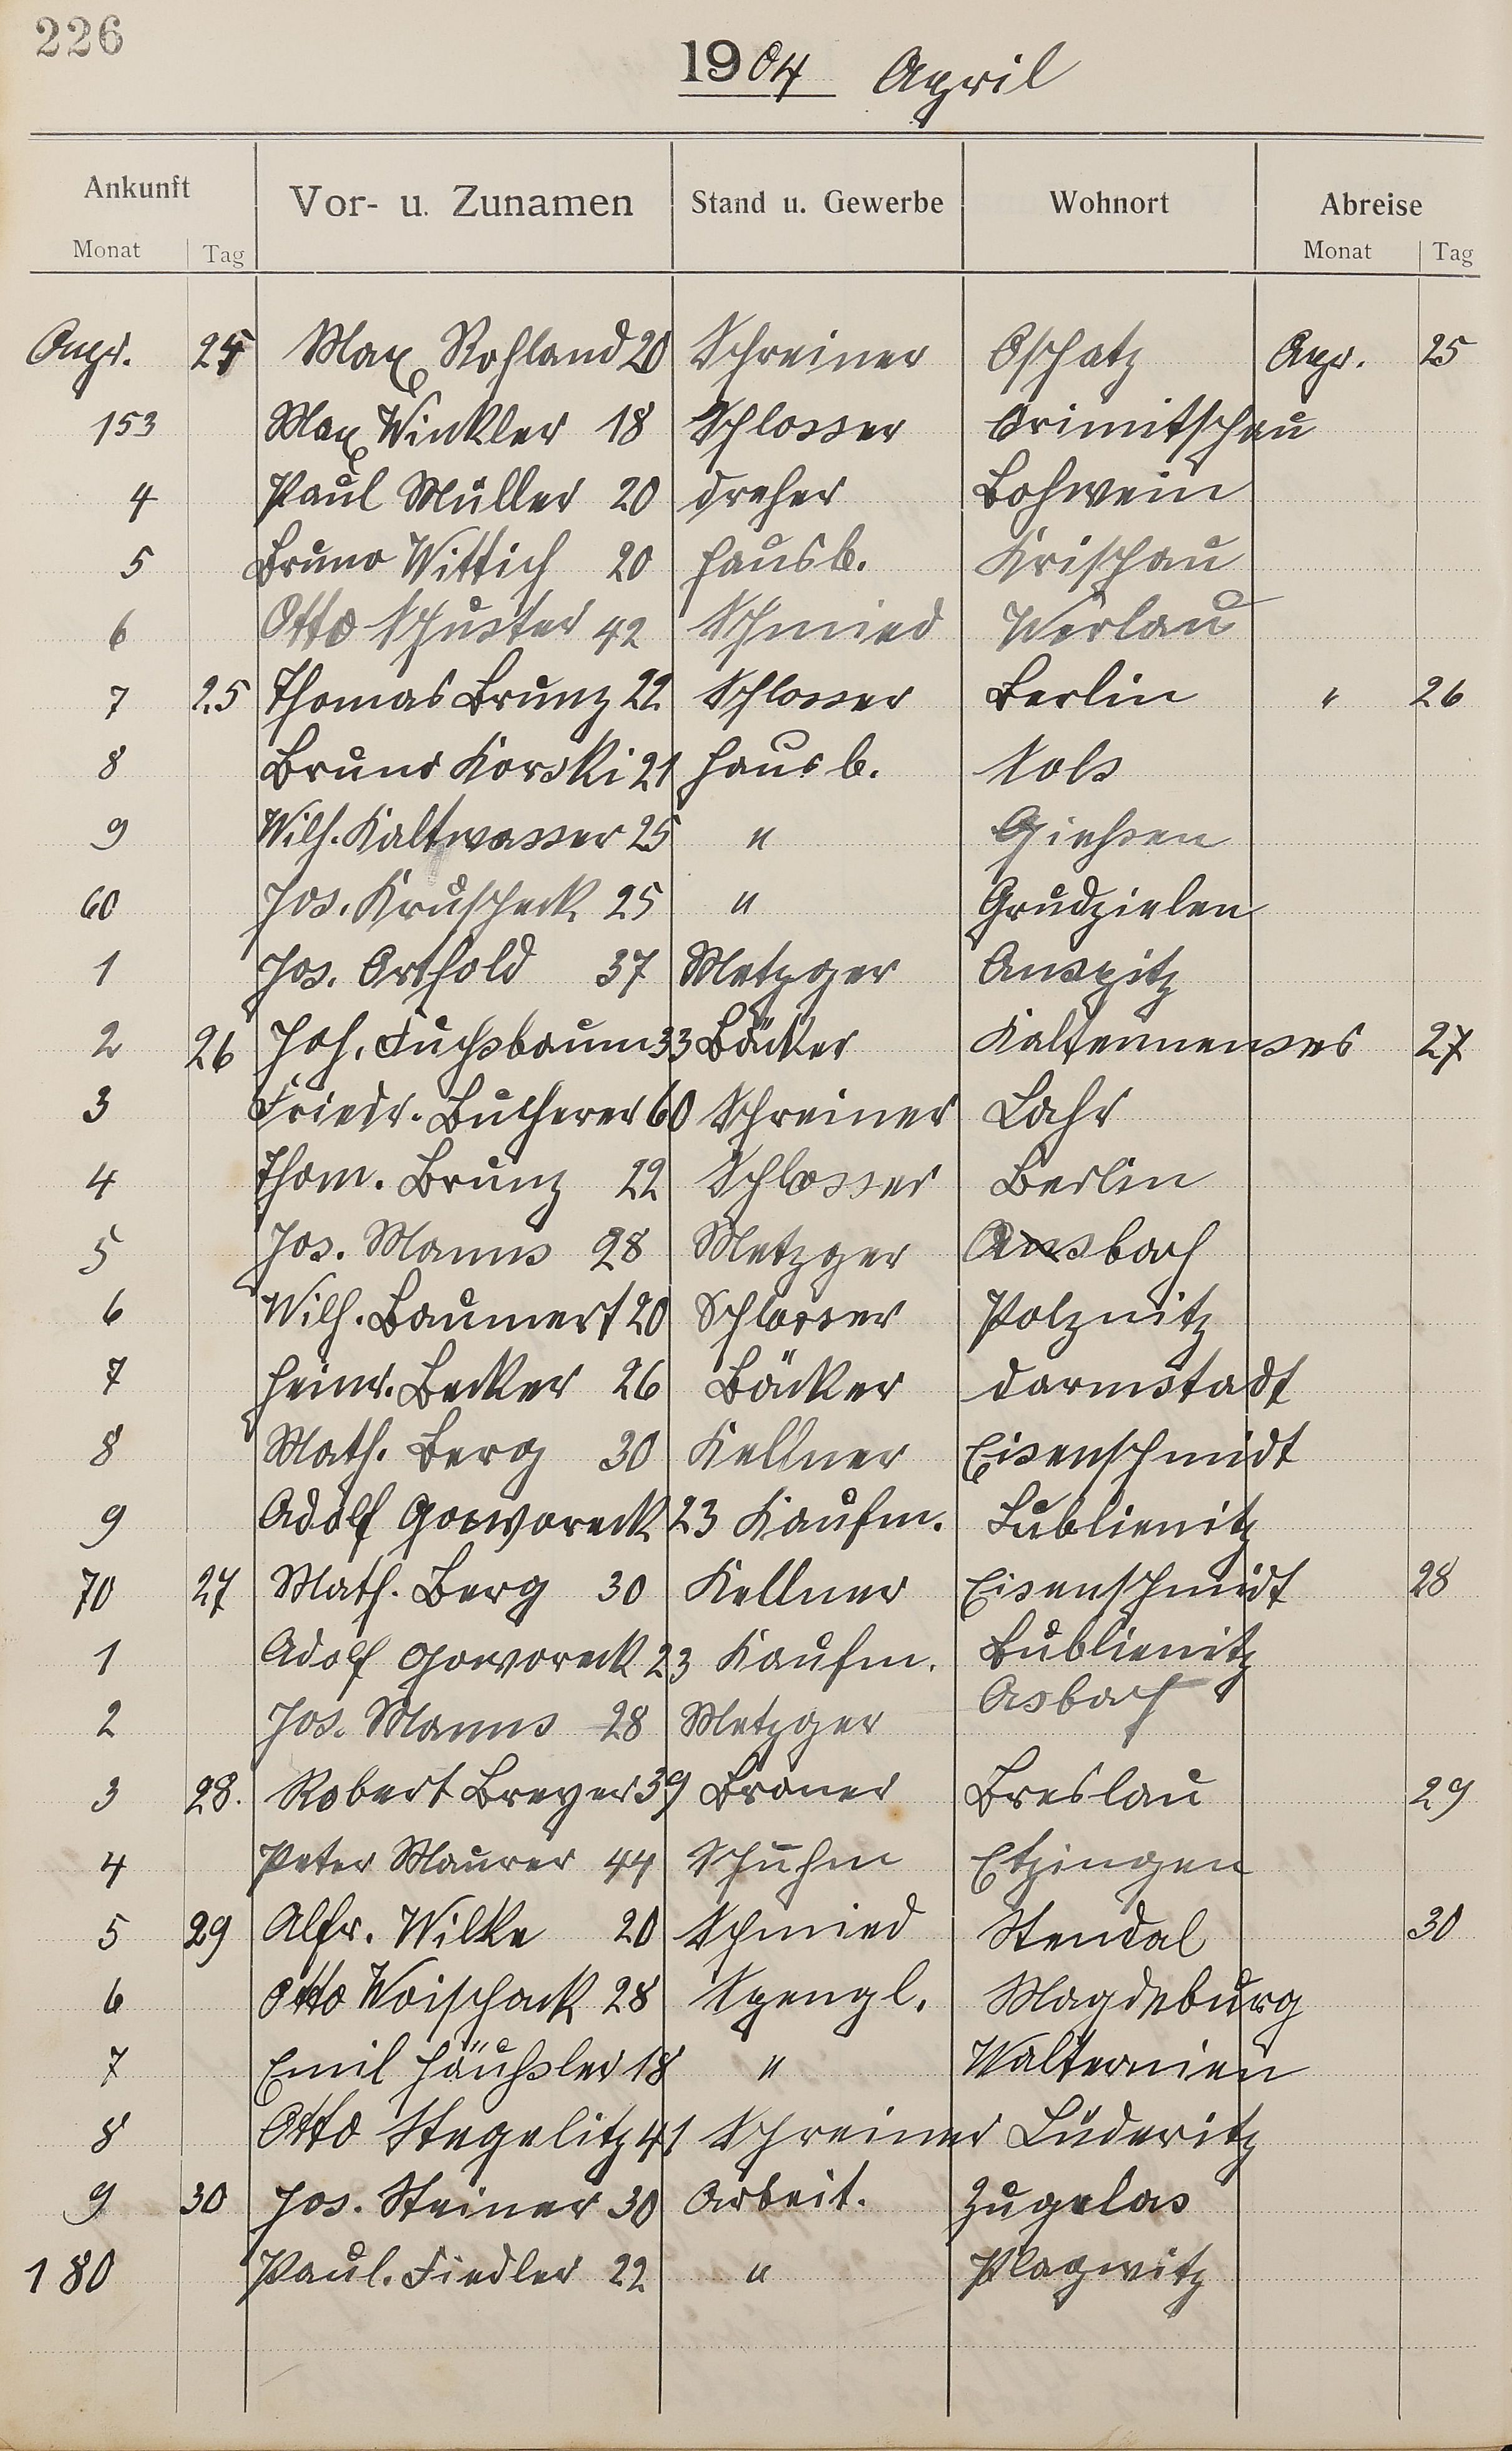 226
1904 April
Ankunft Vor- u. Zunamen Stand u. Gewerbe Wohnort Abreise
Monat Tag Monat Tag
Apr. 24 Max Rohland 20 Schreiner Oschatz Apr. 25
153 Max Winkler 18 Schlosser Crimitschau
4 Paul Müller 20 dreher Bohwein
5 Bruno Wittich 20 Hausb. Krischau
6 Otto Schuster 42 Schmied Werlau
7 25 Thomas Brunz 22 Schlosser Berlin " 26
8 Bruno Korski 21 Hausb. Nols
9 Wilh. Kaltwasser 25 " Giehsen
60 Jos. Kruscheck 25 " Grudzielen
1 Jos. Orthold 37 Metzger Auspitz
2 26 Joh. Fuchsbaum 33 Bäcker 27
3 Friedr. Bucherer 60 Schreiner Lahr
4 Thom. Brunz 22 Schlosser Berlin
5 Jos. Manns 28 Metzger Asbach
6 Wilh. Baumert 20 Schlosser Polznitz
7 Heinr. Becker 26 Bäcker Darmstadt
8 Math. Berg 30 Kellner Eisenschmidt
9 Adolf Goworeck 23 Kaufm. Lublienitz
70 27 Math. Berg 30 Kellner Eisenschmidt 28
1 Adolf Goworeck 23 Kaufm. Lublienitz
2 Jos. Manns 28 Metzger Asbach
3 28. Robert Breyer 39 Braner Breslau 29
4 Peter Maurer 44 Schuhm Etzingen
5 29 Alfr. Wilke 20 Schmied Stendal 30
6 Otto Woischack 28 Spengl. Magdeburg
7 Emil Häuhsler 18 " Walternien
8 Otto Stegelitz 41 Schreiner Lüderitz
9 30 Jos. Steiner 30 Arbeit. Zugelas
180 Paul. Fiedler 22 " Plagwitz